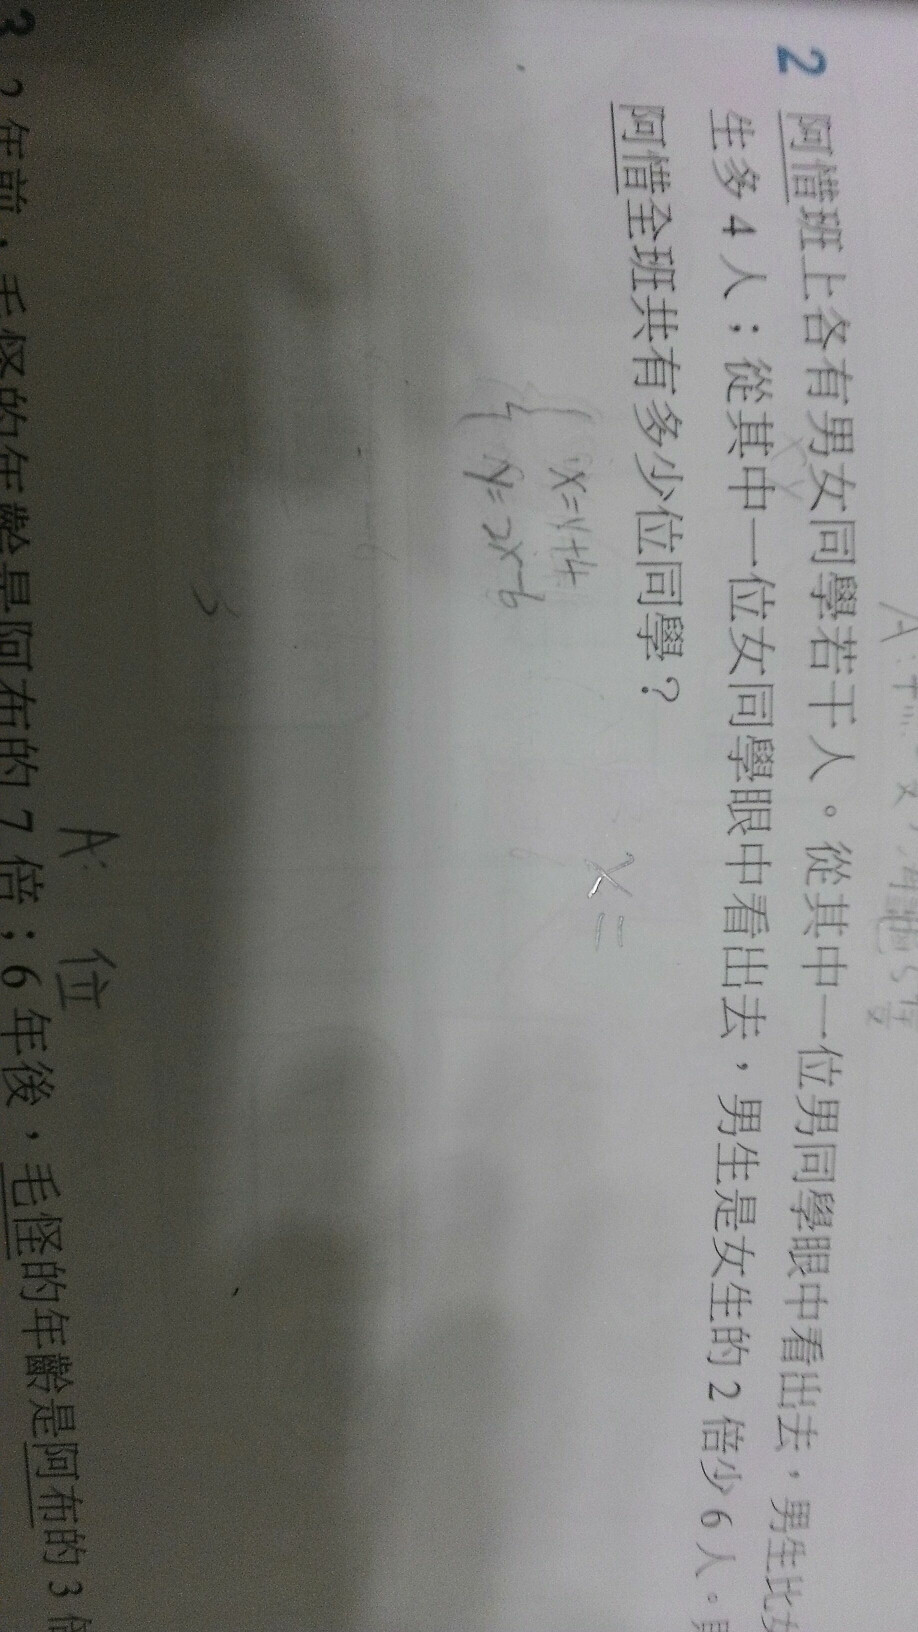 2 阿惜班上各有男女同學若干人。從其中一位男同學眼中看出去，男生比女
生多4人；從其中一位女同學眼中看出去，男生是女生的2倍少6人。則
阿惜全班共有多少位同學？
x=y+4
y=2x-6
x=
A: 位
3 2年前，毛怪的年齡是阿布的7倍；6年後，毛怪的年齡是阿布的3倍